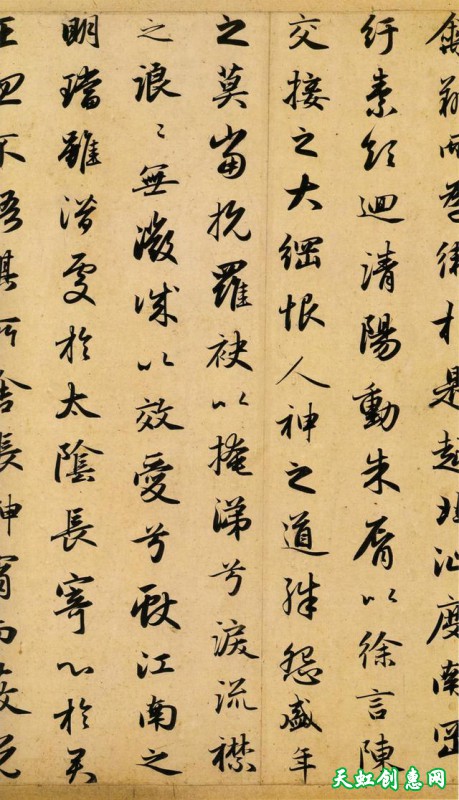 禽翔而為衛於是越北沚度南岡
紆素領迴清陽動朱脣以徐言陳
交接之大綱恨人神之道殊怨盛年
之莫當抗羅袂以掩涕兮淚流襟
之浪〻無微誠以效愛兮獻江南之
明璫雖潛處於太陰長寄心於君
王忽不悟其所舍悵神宵而蔽光
天虹创惠网